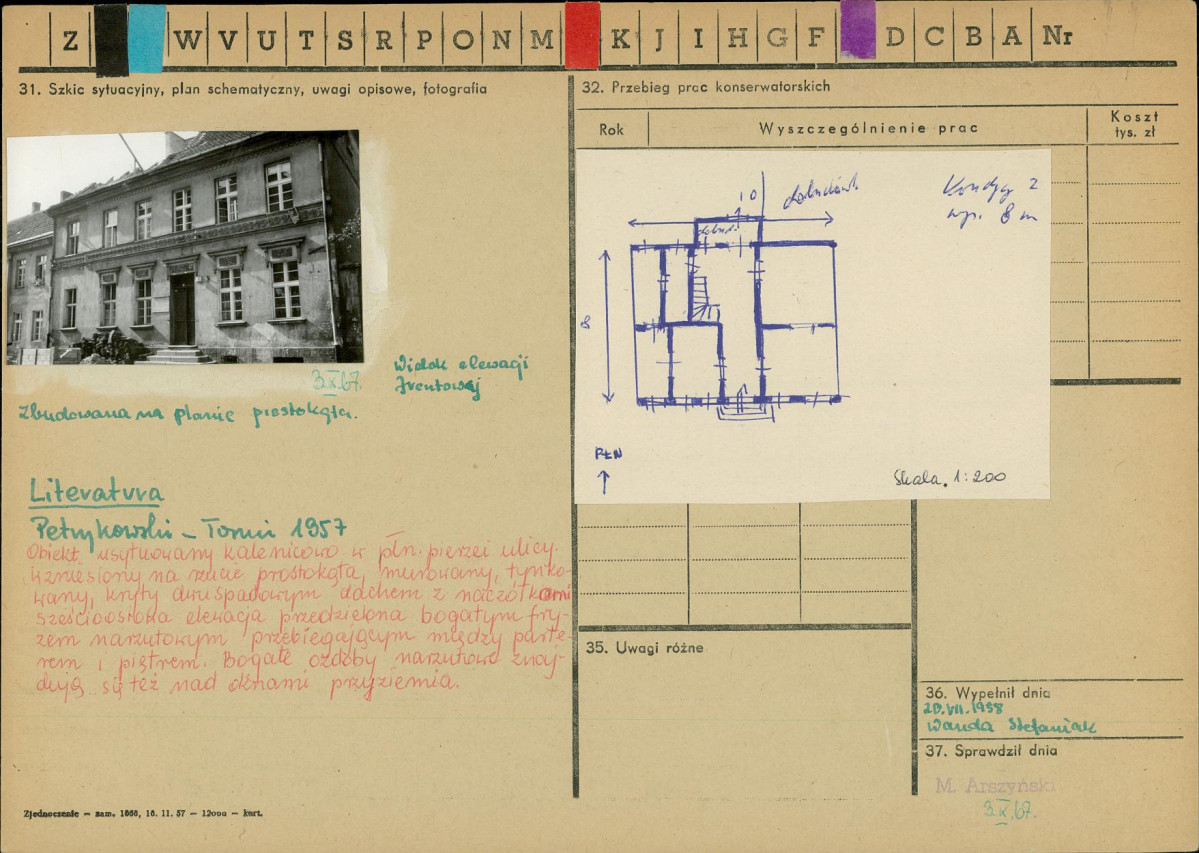 Z W V U T S R P O N M K J I H G F D C B A Nr
31. Szkic sytuacyjny, plan schematyczny, uwagi opisowe, fotografia
3.X.67.
Widok elewacji
frontowej
Zbudowana na planie prostokąta.
Literatura
Petrykowski – Toruń 1957
Obiekt usytuowany kalenicowo w płn. pierzei ulicy.
Wzniesiony na rzucie prostokąta, murowany, tynko-
wany, kryty dwuspadowym dachem z naczółkami
sześcioosiowa elewacja przedzielona bogatym fry-
zem narzutowym przebiegającym między parte-
rem i piętrem. Bogate ozdoby narzutowe znaj-
dują się też nad oknami przyziemia.
Zjednoczenie – zam. 1068, 16. 11. 57 – 12000 – kart.
32. Przebieg prac konserwatorskich
Rok Wyszczególnienie prac Koszt
tys. zł
Kondyg 2
wys. 8 m
10
dobud.
8
PŁN
Skala. 1:200
35. Uwagi różne
36. Wypełnił dnia
20.VII.1958
Wanda Stefaniak
37. Sprawdził dnia
M. Arszyński
3.X.67.